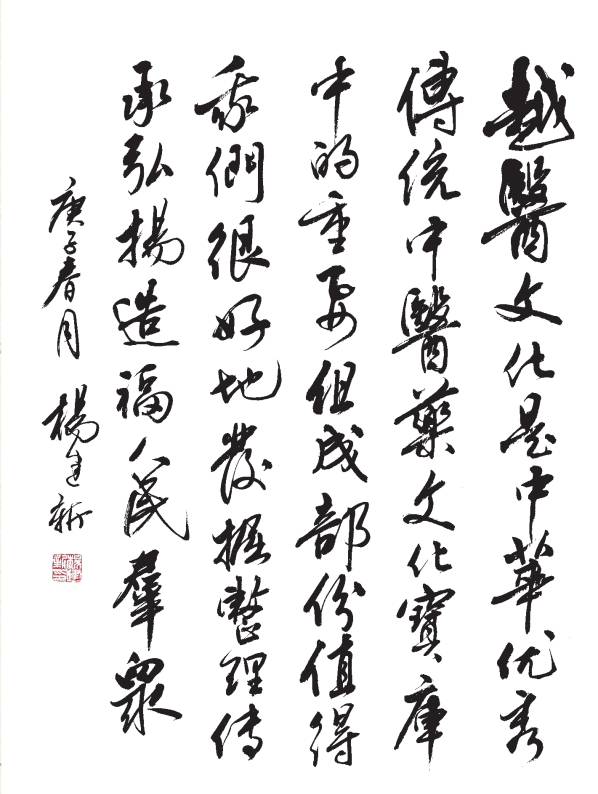 越醫文化是中華优秀
傳统中醫藥文化寶庫
中的重要组成部份值得
我們很好地發掘整理传
承弘揚造福人民羣眾
庚子春月
楊建新